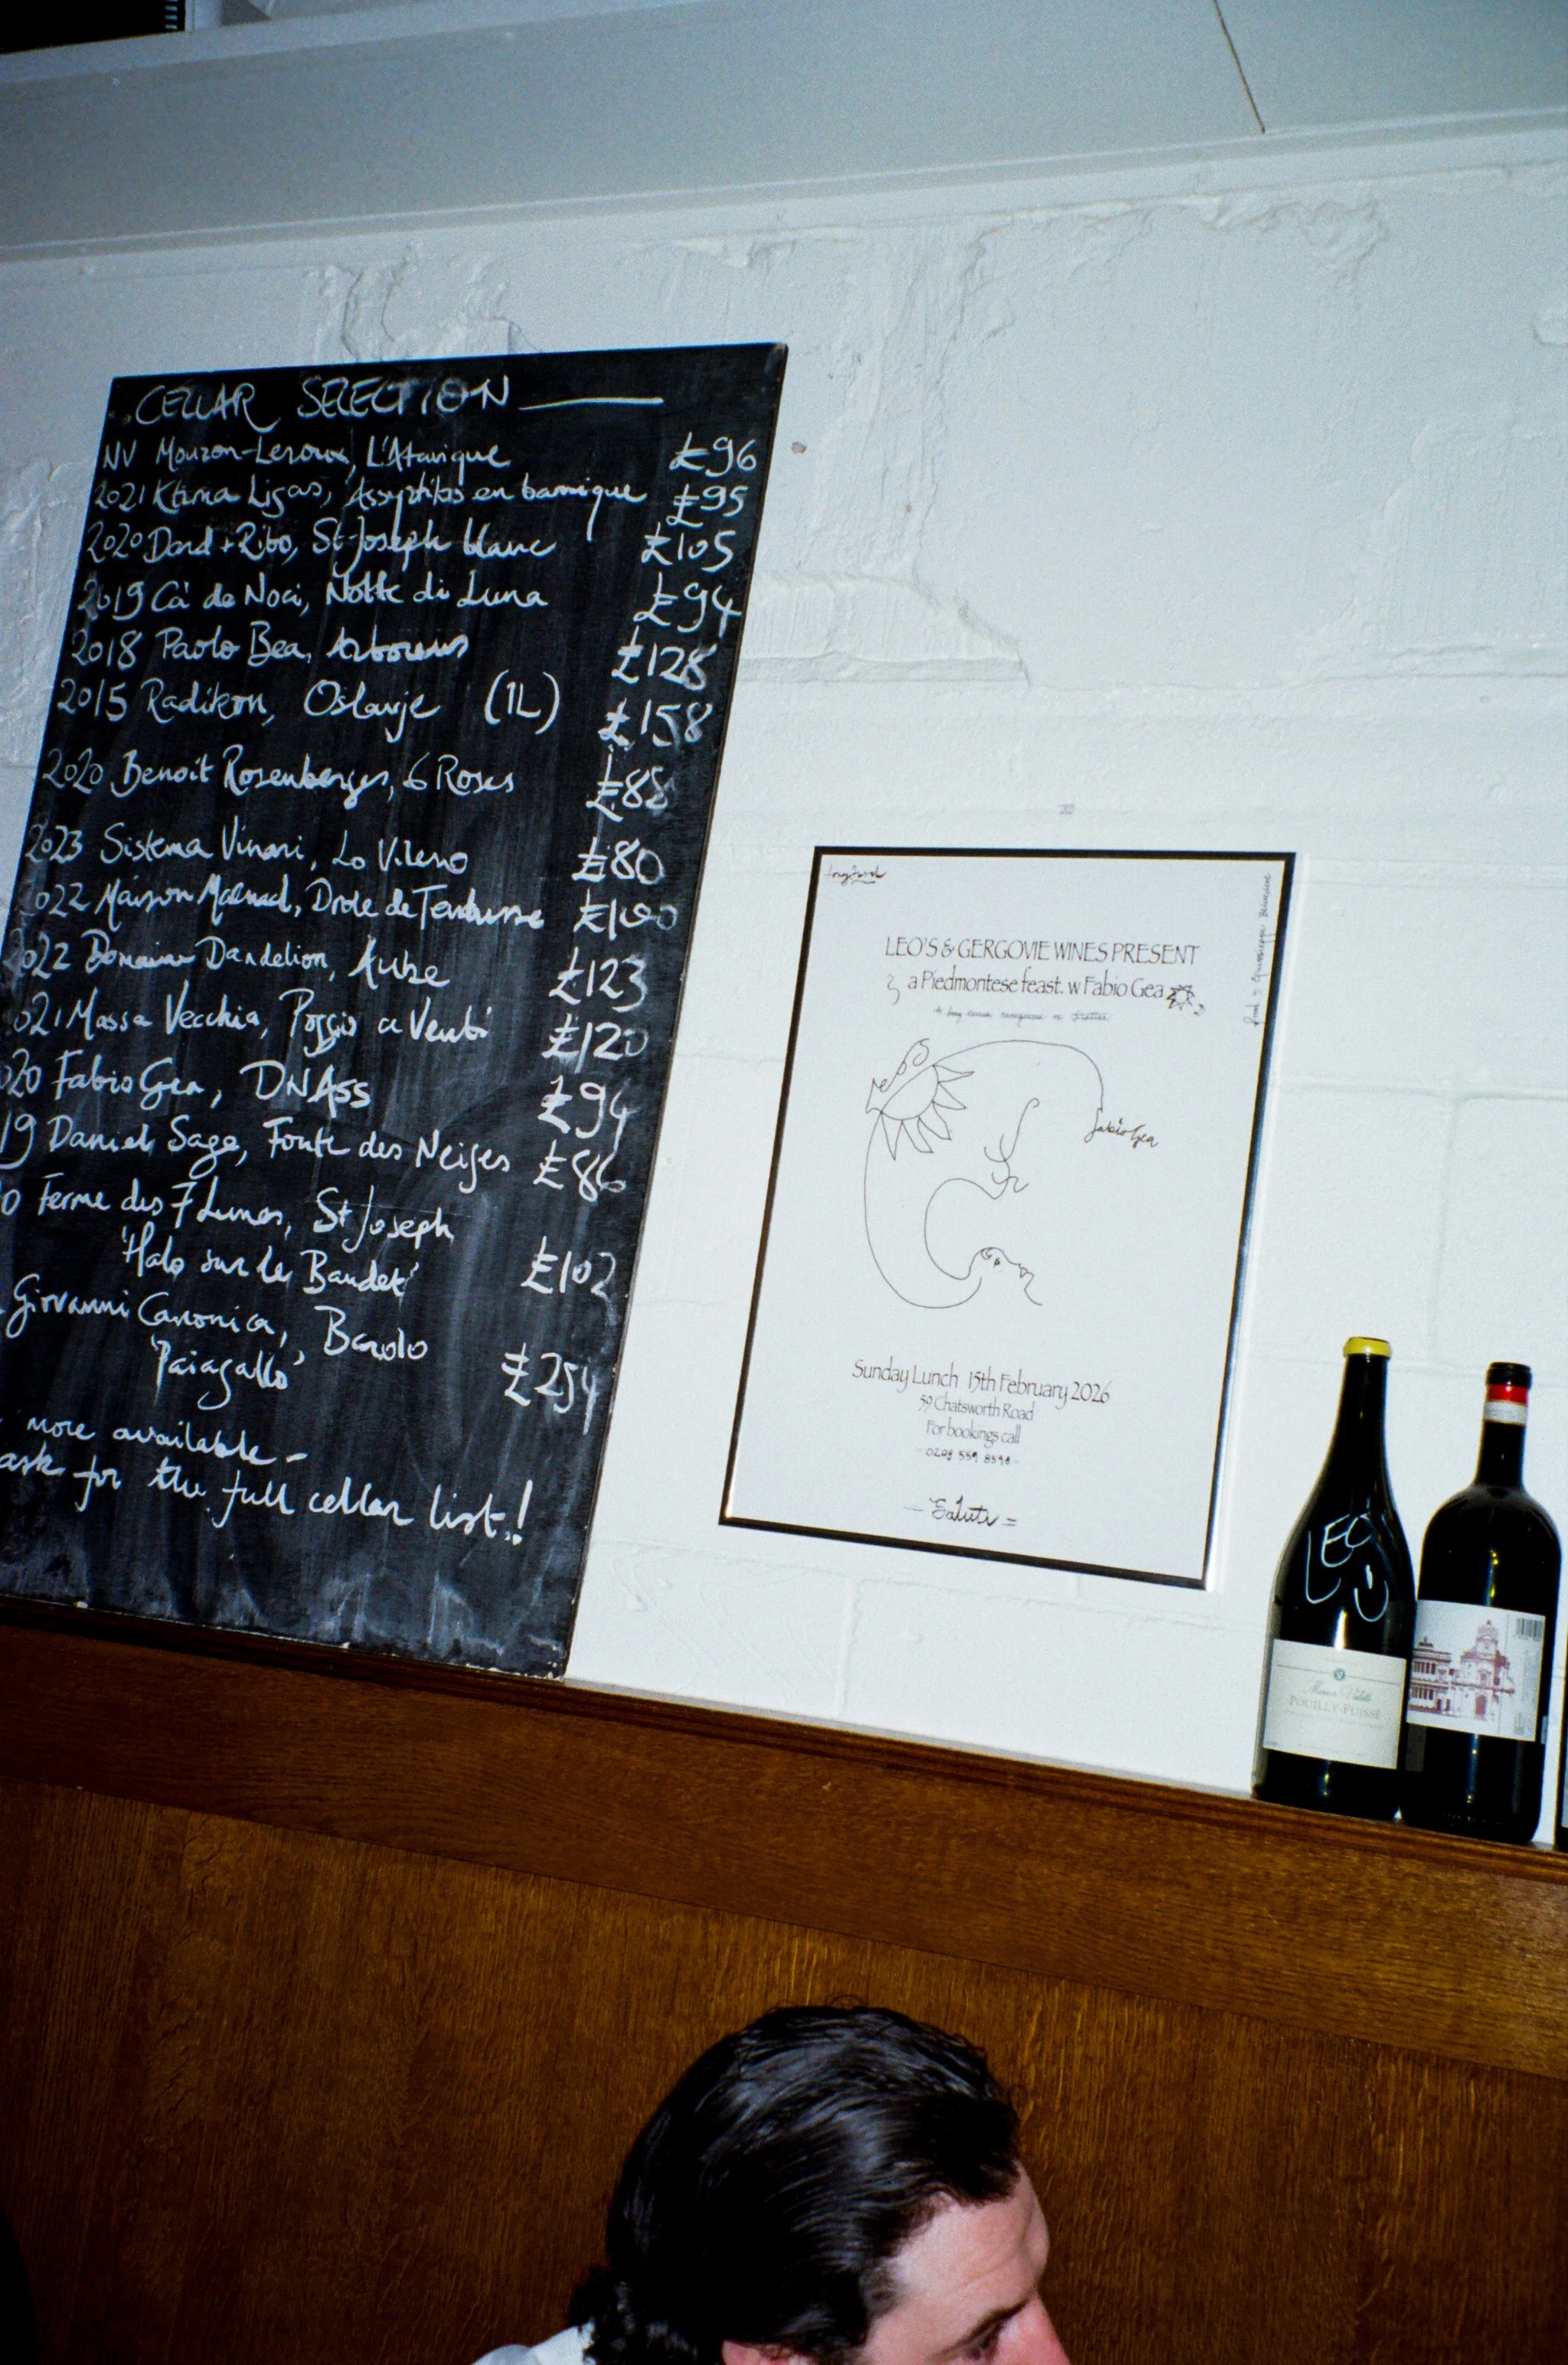 CELLAR SELECTION
NV Mouzon-Leroux, L'Atavique £96
2021 Ktima Ligas, Assyrtiko en barrique £95
2020 Dard + Ribo, St Joseph blanc £105
2019 Cà de Noci, Notte di Luna £94
2018 Paolo Bea, Arboreus £128
2015 Radikon, Oslavje (1L) £158
2020 Benoit Rosenberger, 6 Roses £88
2023 Sistema Vinari, Lo Vilerno £80
022 Maison Maenad, Drole de Tendresse £100
022 Domaine Dandelion, Aube £123
021 Massa Vecchia, Poggio a Venti £120
020 Fabio Gea, DNAss £94
19 Daniel Sage, Fonte des Neiges £86
0 Ferme des 7 Lunes, St Joseph
'Halo sur le Baudet' £102
Giovanni Canonica, Barolo
'Paiagallo' £254
more available -
ask for the full cellar list!
LEO'S & GERGOVIE WINES PRESENT
a Piedmontese feast. w Fabio Gea
fabio Gea
Sunday Lunch 15th February 2026
59 Chatsworth Road
For bookings call
0208 559 8598
- Saluti =
LEO
POUILLY-FUISSÉ